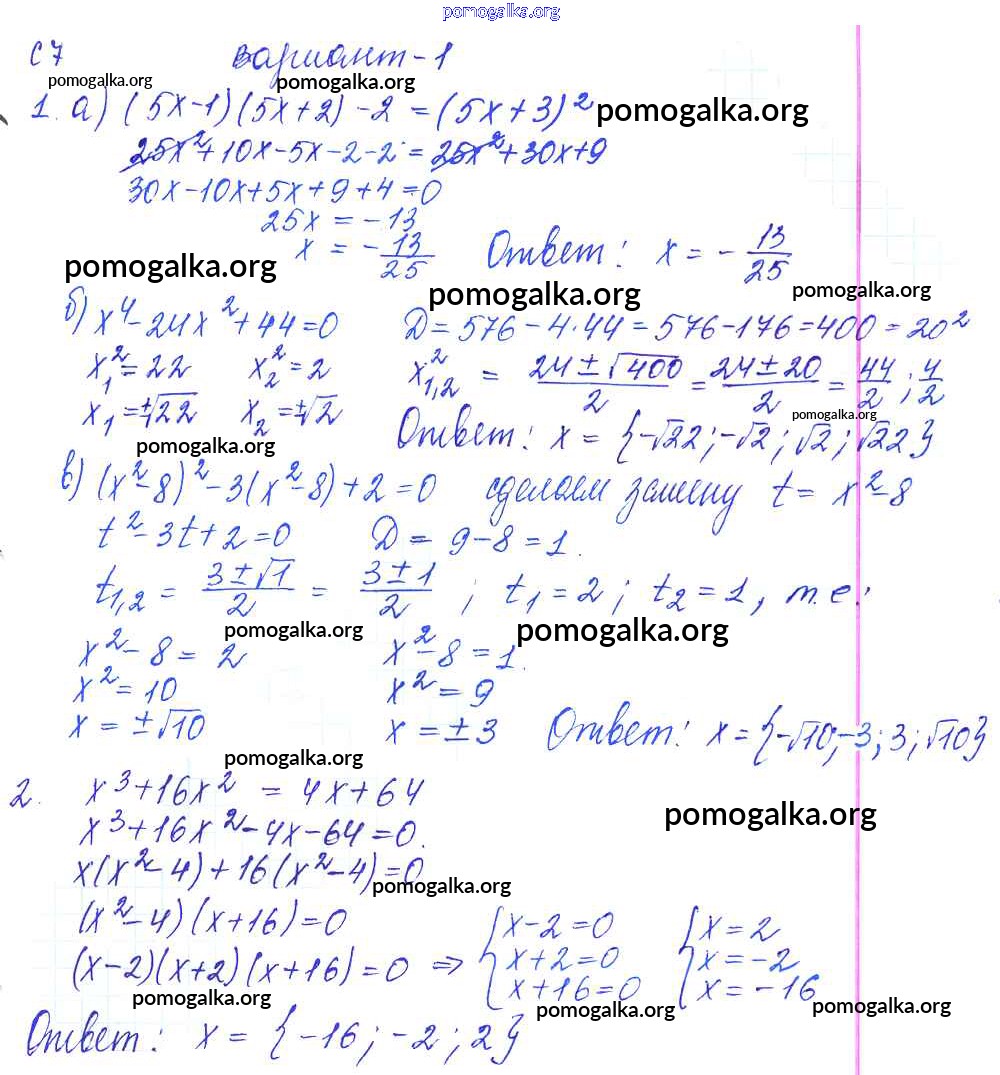 pomogalka.org
С7 вариант-1
pomogalka.org pomogalka.org
1. а) (5x-1)(5x+2)-2=(5x+3)² pomogalka.org
25x²+10x-5x-2-2=25x²+30x+9
30x-10x+5x+9+4=0
25x = -13
x = -13/25 Ответ: x = -13/25
pomogalka.org pomogalka.org pomogalka.org
б) x⁴-24x²+44=0 D=576-4·44=576-176=400=20²
x₁²=22 x₂²=2 x²₁,₂ = (24±√400)/2 = (24±20)/2 = 44/2; 4/2
x₁=±√22 x₂=±√2 Ответ: x = {-√22; -√2; √2; √22}
pomogalka.org pomogalka.org
в) (x²-8)²-3(x²-8)+2=0 сделаем замену t= x²-8
t²-3t+2=0 D= 9-8=1.
t₁,₂ = (3±√1)/2 = (3±1)/2; t₁=2; t₂=1, т.е.:
pomogalka.org pomogalka.org
x²-8= 2 x²-8=1.
x²=10 x²=9
x=±√10 x=±3 Ответ: x={-√10;-3;3;√10}
pomogalka.org
2. x³+16x² = 4x+64
pomogalka.org
x³+16x²-4x-64=0.
x(x²-4)+16(x²-4)=0
pomogalka.org
(x²-4)(x+16)=0 { x-2=0 { x=2
(x-2)(x+2)(x+16)=0 ⇒ x+2=0 x=-2
x+16=0 x=-16
pomogalka.org pomogalka.org pomogalka.org
Ответ: x= {-16; -2; 2}